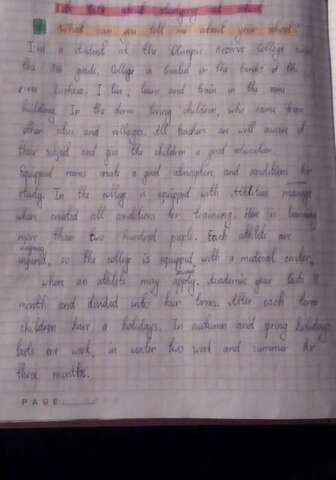 Let's talk about studying at school
What can you tell me about your school?
I'm a student at the Olympic Reserve College since
the 8th grade. College is located in the banks of the
river. I live, learn and train in the same
building. In the dorm living children, who came from
other cities and villages. All teachers are well aware of
their subject and give the children a good education.
Equipped rooms create a good atmosphere and conditions for
study. In the college is equipped with Athletics
when created all conditions for training. Here is learning
more than two hundred people. Each athlete are
injured, so the college is equipped with a medical center,
where an athlete may apply. Academic year lasts 9
month and divided into four terms. After each term
children have a holidays. In autumn and spring holidays
lasts one week, in winter two week and summer for
three months.
PAGE